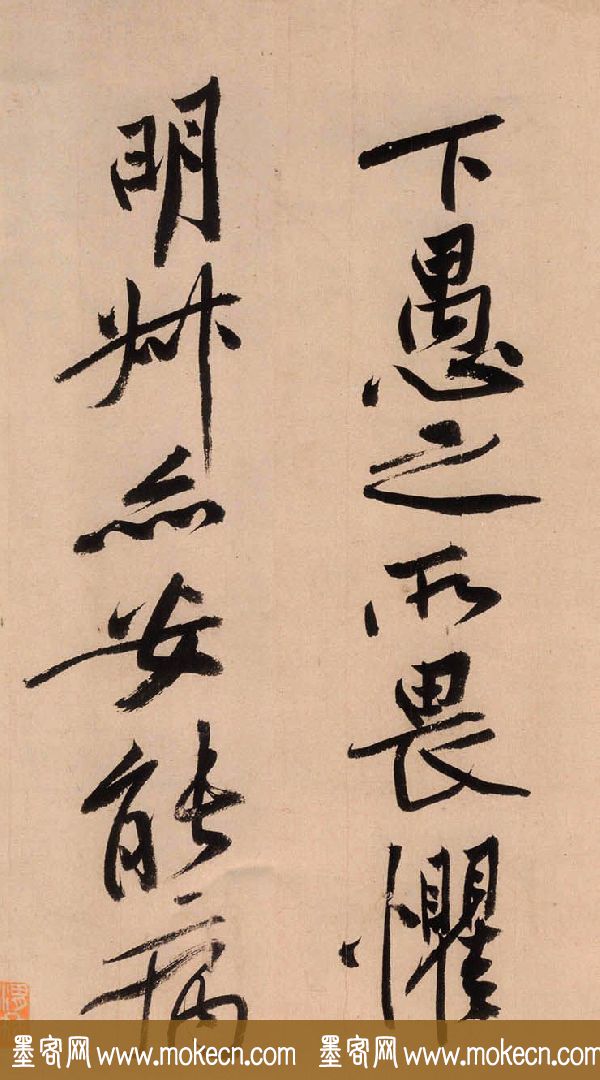 下愚之所畏懼
明亦安能病
墨客网 www.mokecn.com 墨客网 www.mokecn.com